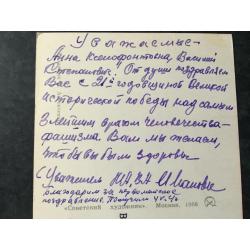 Уважаемые
Анна Ксенофонтовна Василий
Степанович! От души поздравляем
Вас с 21й годовщиной Великой
исторической победы над самым
злейшим врагом человечества-
фашизма. Вам мы желаем,
чтобы вы были здоровы.
С уважением
благодарим за первомайское
поздравление. Получили
"Советский художник". Москва. 1966